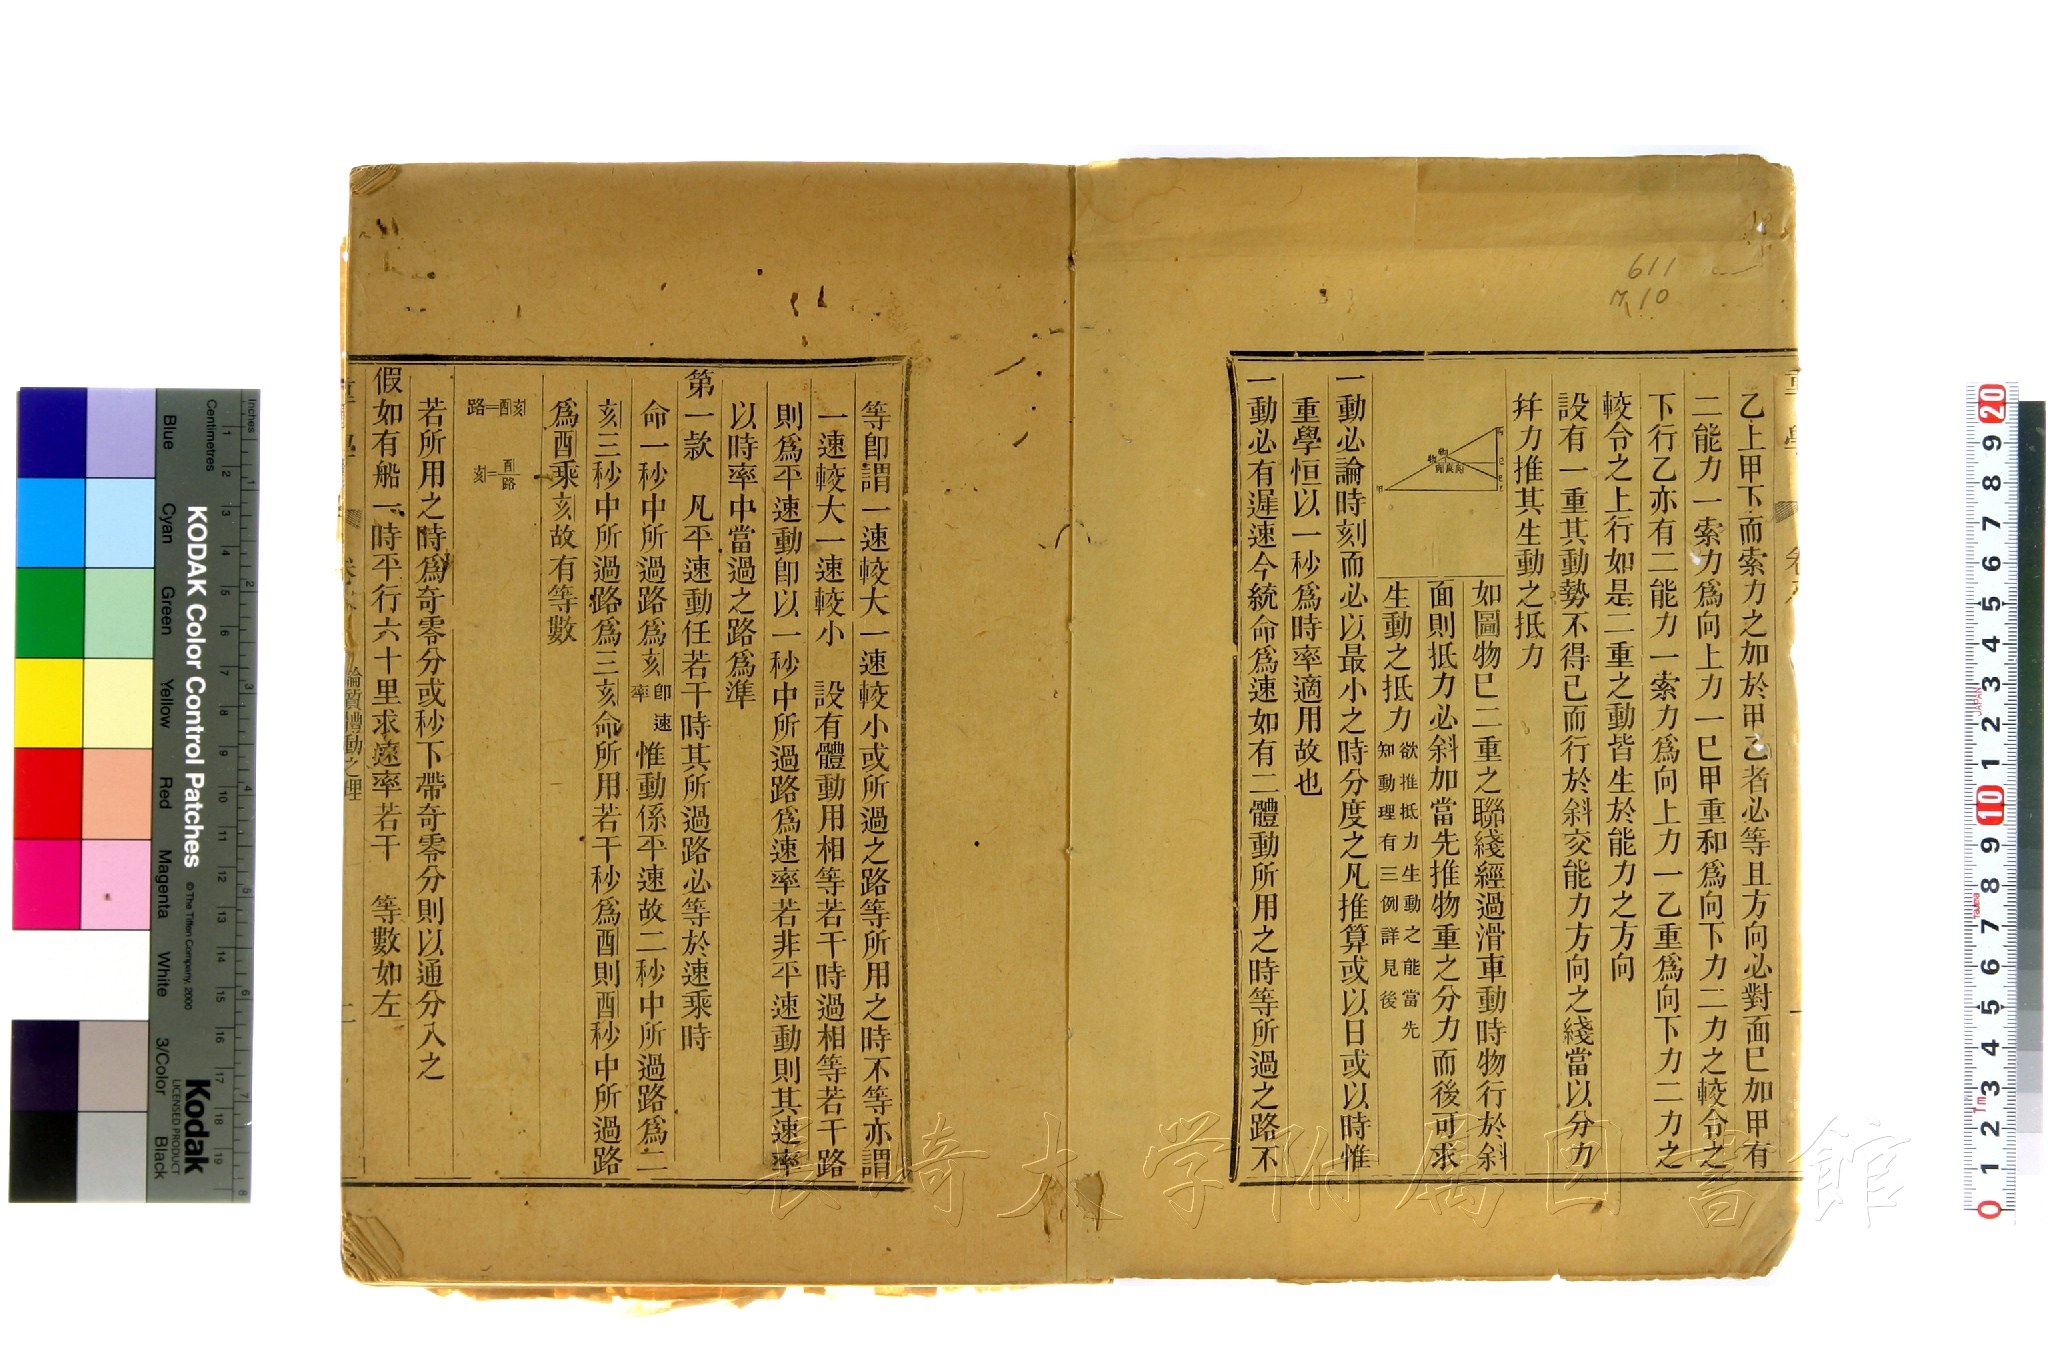 611
M10
乙上甲下而索力之加於甲乙者必等且方向必對面巳加甲有
二能力一索力爲向上力一巳甲重和爲向下力二力之較令之
下行乙亦有二能力一索力爲向上力一乙重爲向下力二力之
較令之上行如是二重之動皆生於能力之方向
設有一重其動勢不得已而行於斜交能力方向之綫當以分力
幷力推其生動之抵力
如圖物巳二重之聯綫經過滑車動時物行於斜
面則抵力必斜加當先推物重之分力而後可求
生動之抵力
欲推抵力生動之能當先
知動理有三例詳見後
一動必論時刻而必以最小之時分度之凡推算或以日或以時惟
重學恒以一秒爲時率適用故也
一動必有遲速今統命爲速如有二體動所用之時等所過之路不
等卽謂一速較大一速較小或所過之路等所用之時不等亦謂
一速較大一速較小　設有體動用相等若干時過相等若干路
則爲平速動卽以一秒中所過路爲速率若非平速動則其速率
以時率中當過之路爲準
第一款　凡平速動任若干時其所過路必等於速乘時
命一秒中所過路爲亥卽速率惟動係平速故二秒中所過路爲二
亥三秒中所過路爲三亥命所用若干秒爲酉則酉秒中所過路
爲酉乘亥故有等數
路=酉亥
亥=酉/路
若所用之時爲奇零分或秒下帶奇零分則以通分入之
假如有船一時平行六十里求速率若干　等數如左
論質體動之理
二
Blue Cyan Green Yellow Red Magenta White 3/Color Black
KODAK Color Control Patches
© The Tiffen Company, 2000
Kodak
LICENSED PRODUCT
Centimetres
Inches
JAPAN
長崎大学附属図書館